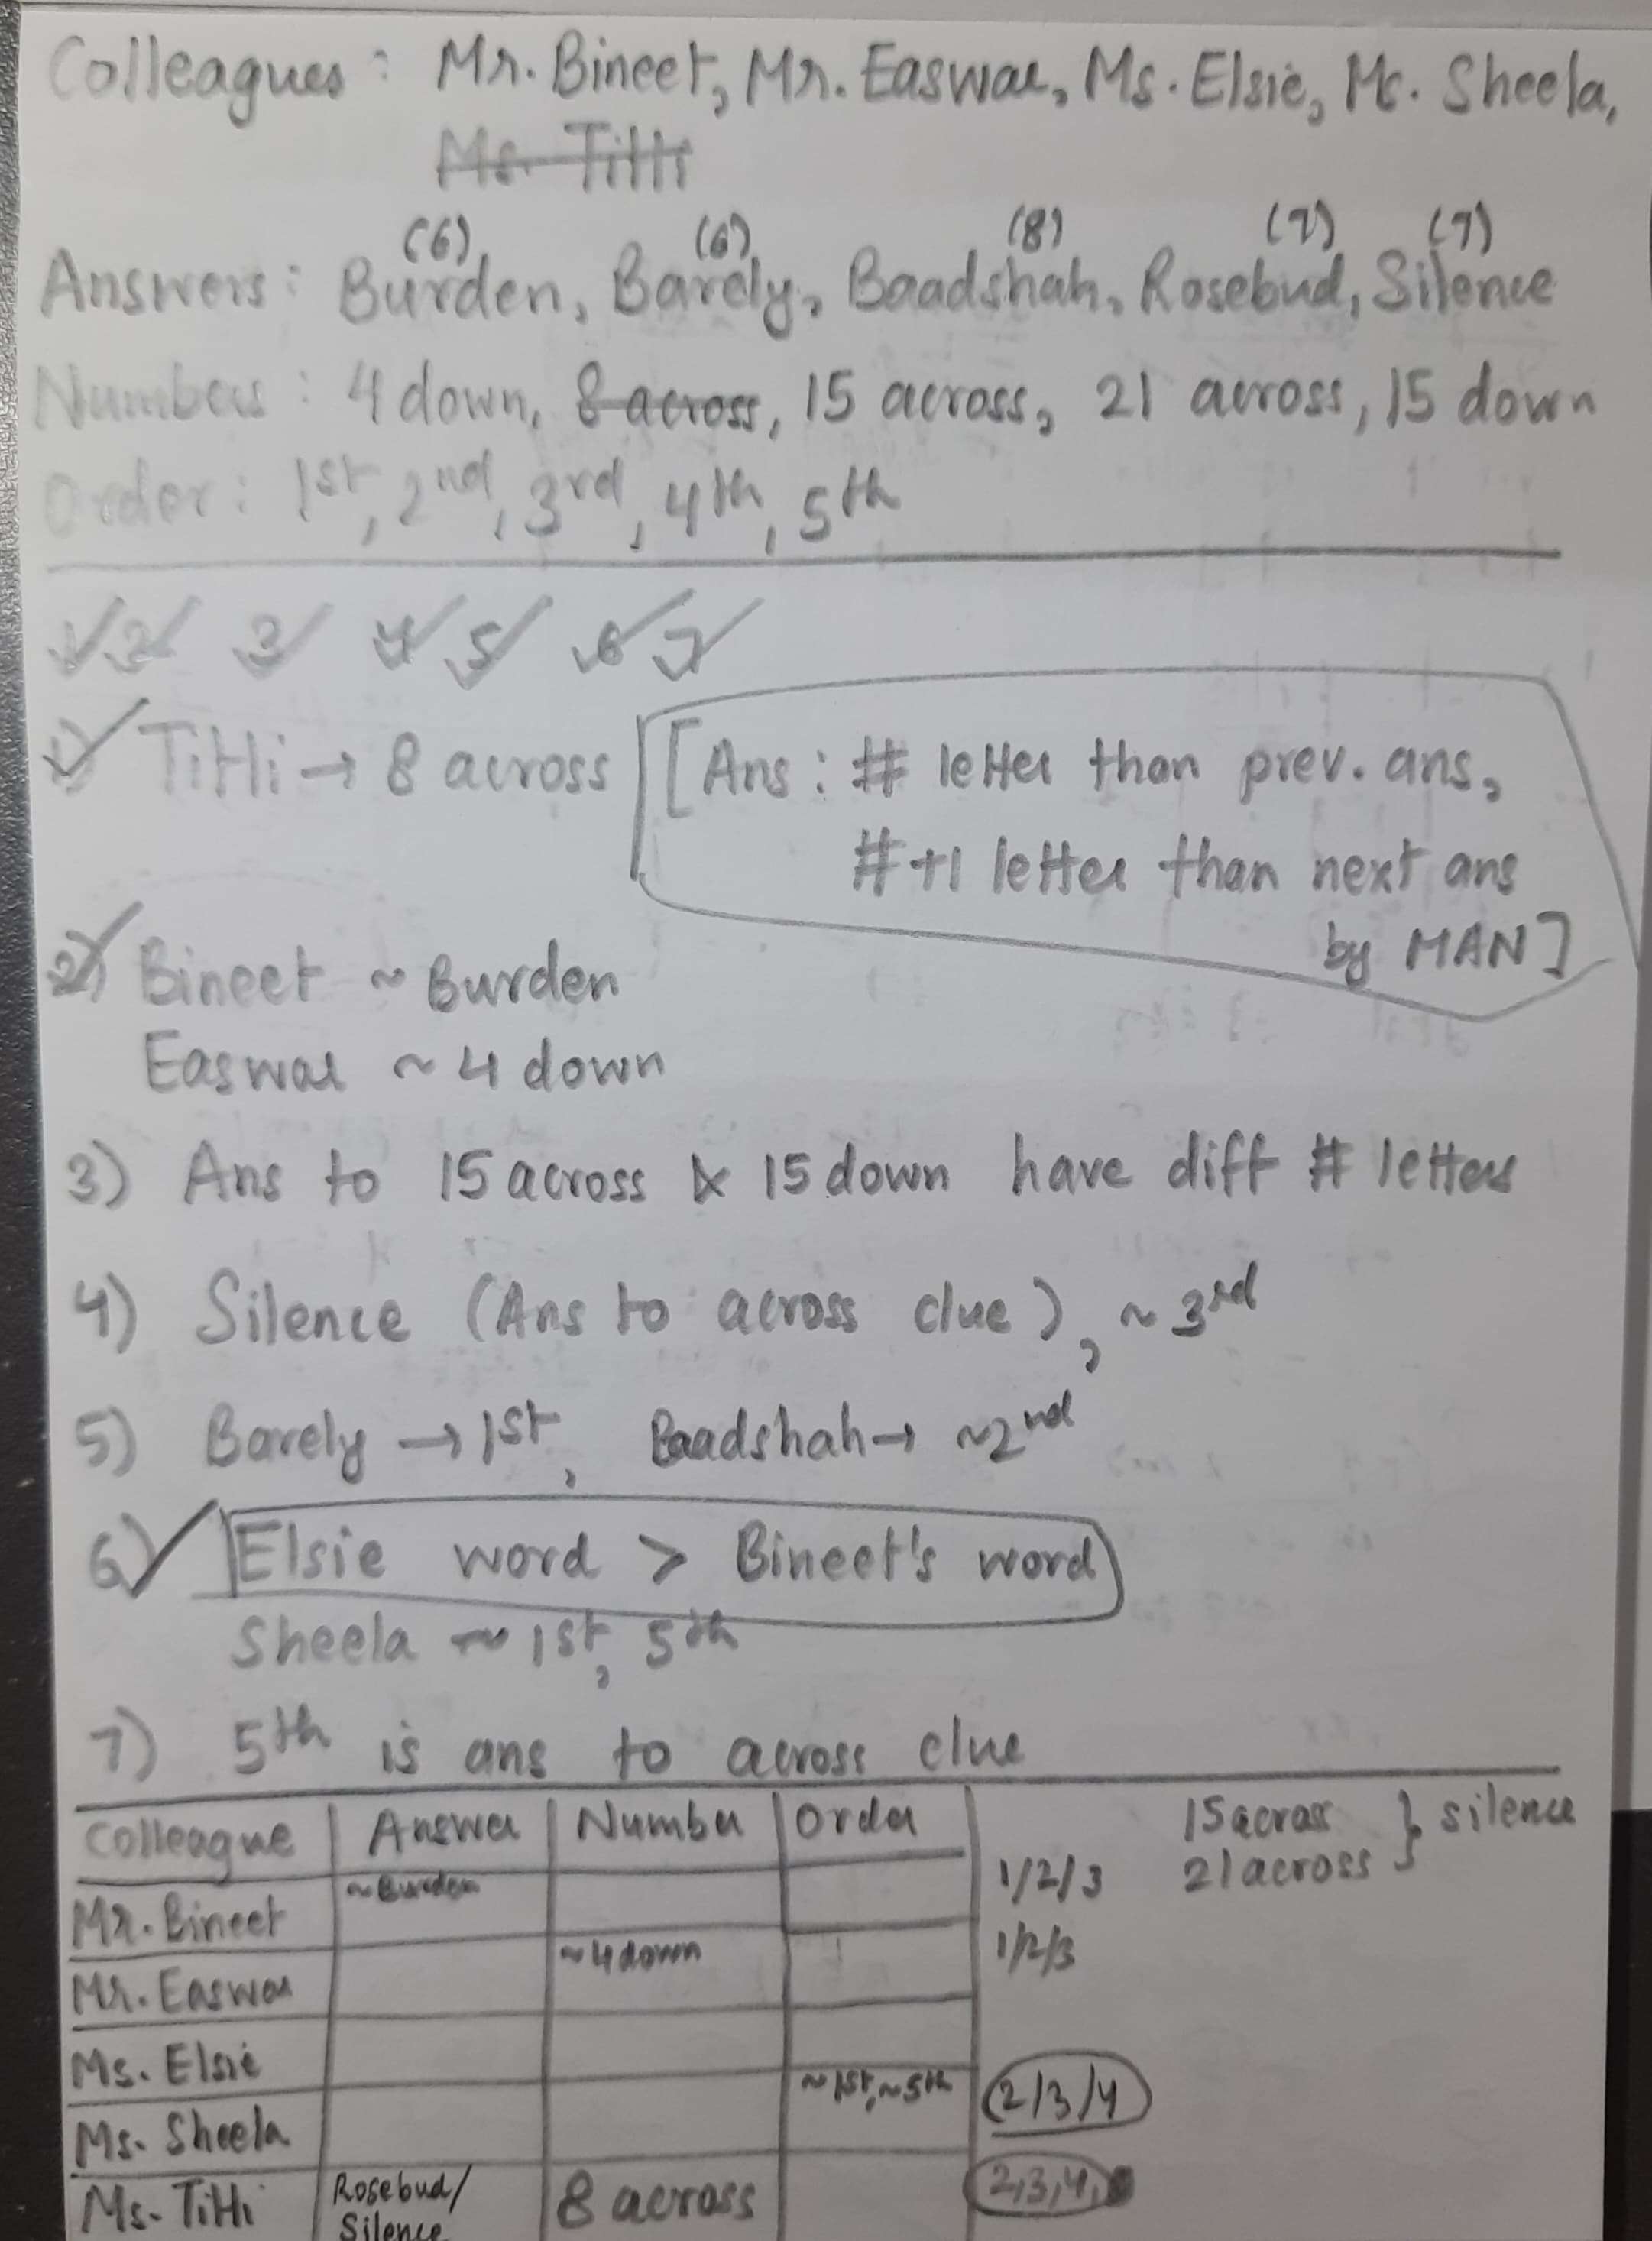 Colleagues : Mr. Bineet, Mr. Easwar, Ms. Elsie, Ms. Sheela,
Ms. Titli
(6) (6) (8) (7) (7)
Answers : Burden, Barely, Baadshah, Rosebud, Silence
Numbers : 4 down, 8 across, 15 across, 21 across, 15 down
Order : 1st, 2nd, 3rd, 4th, 5th
1 2 3 4 5 6 7
1) Titli → 8 across [Ans : # letter than prev. ans,
# +1 letter than next ans
by MAN]
2) Bineet ~ Burden
Easwar ~ 4 down
3) Ans to 15 across & 15 down have diff # letters
4) Silence (Ans to across clue), ~ 3rd
5) Barely → 1st, Baadshah → ~2nd
6) Elsie word > Bineet's word
Sheela ~ 1st, 5th
7) 5th is ans to across clue
Colleague Answer Number Order
15 across } silence
21 across
Mr. Bineet ~Burden 1/2/3
Mr. Easwar ~4 down 1/2/3
Ms. Elsie
Ms. Sheela ~1st, ~5th 2/3/4
Ms. Titli Rosebud/ 8 across 2,3,4,
Silence